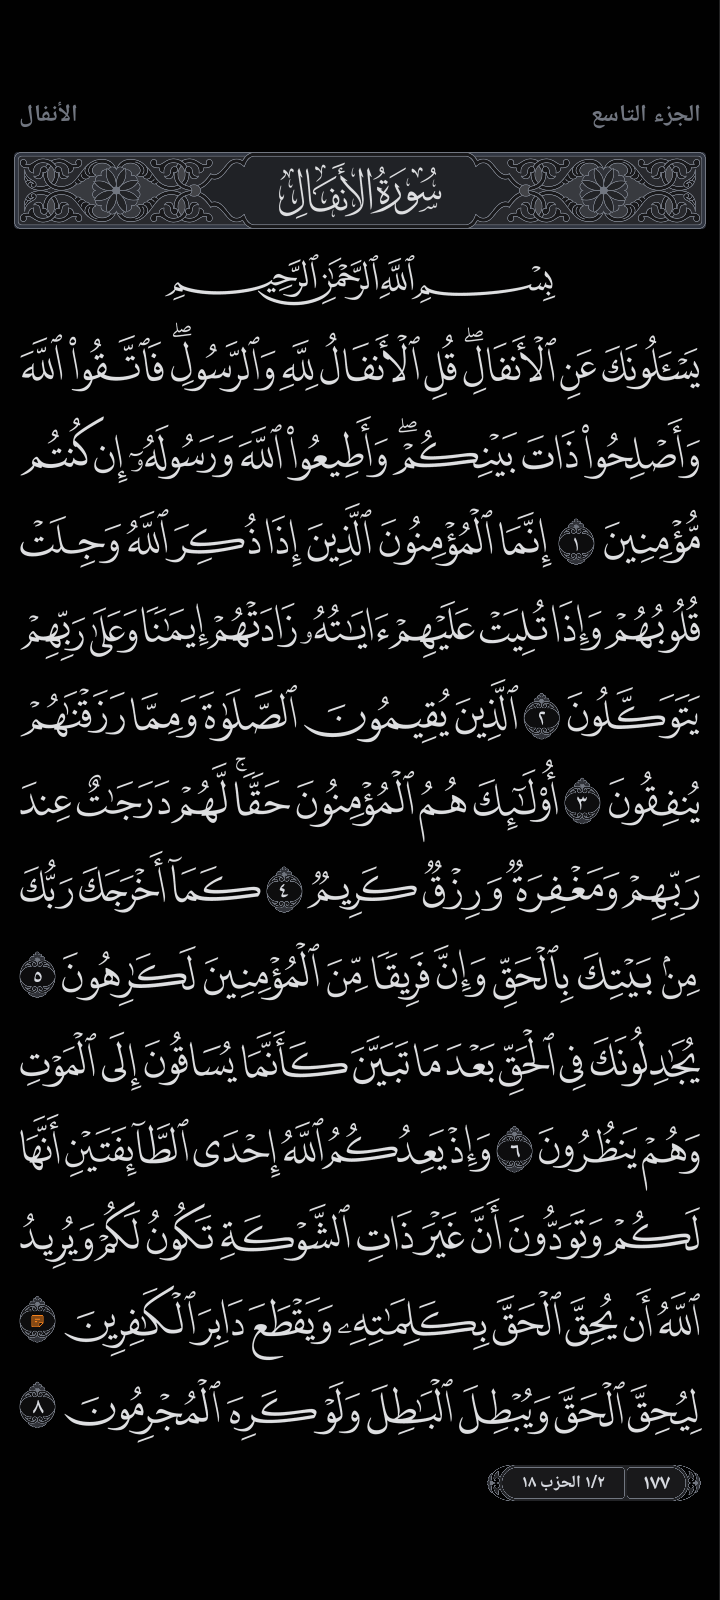 الجزء التاسع
الأنفال
سُورَةُ الأَنفَالِ
بِسْمِ ٱللَّهِ ٱلرَّحْمَٰنِ ٱلرَّحِيمِ
يَسْـَٔلُونَكَ عَنِ ٱلْأَنفَالِۖ قُلِ ٱلْأَنفَالُ لِلَّهِ وَٱلرَّسُولِۖ فَٱتَّقُوا۟ ٱللَّهَ
وَأَصْلِحُوا۟ ذَاتَ بَيْنِكُمْۖ وَأَطِيعُوا۟ ٱللَّهَ وَرَسُولَهُۥٓ إِن كُنتُم
مُّؤْمِنِينَ ١ إِنَّمَا ٱلْمُؤْمِنُونَ ٱلَّذِينَ إِذَا ذُكِرَ ٱللَّهُ وَجِلَتْ
قُلُوبُهُمْ وَإِذَا تُلِيَتْ عَلَيْهِمْ ءَايَٰتُهُۥ زَادَتْهُمْ إِيمَٰنًا وَعَلَىٰ رَبِّهِمْ
يَتَوَكَّلُونَ ٢ ٱلَّذِينَ يُقِيمُونَ ٱلصَّلَوٰةَ وَمِمَّا رَزَقْنَٰهُمْ
يُنفِقُونَ ٣ أُو۟لَٰٓئِكَ هُمُ ٱلْمُؤْمِنُونَ حَقًّاۚ لَّهُمْ دَرَجَٰتٌ عِندَ
رَبِّهِمْ وَمَغْفِرَةٌ وَرِزْقٌ كَرِيمٌ ٤ كَمَآ أَخْرَجَكَ رَبُّكَ
مِنۢ بَيْتِكَ بِٱلْحَقِّ وَإِنَّ فَرِيقًا مِّنَ ٱلْمُؤْمِنِينَ لَكَٰرِهُونَ ٥
يُجَٰدِلُونَكَ فِى ٱلْحَقِّ بَعْدَ مَا تَبَيَّنَ كَأَنَّمَا يُسَاقُونَ إِلَى ٱلْمَوْتِ
وَهُمْ يَنظُرُونَ ٦ وَإِذْ يَعِدُكُمُ ٱللَّهُ إِحْدَى ٱلطَّآئِفَتَيْنِ أَنَّهَا
لَكُمْ وَتَوَدُّونَ أَنَّ غَيْرَ ذَاتِ ٱلشَّوْكَةِ تَكُونُ لَكُمْ وَيُرِيدُ
ٱللَّهُ أَن يُحِقَّ ٱلْحَقَّ بِكَلِمَٰتِهِۦ وَيَقْطَعَ دَابِرَ ٱلْكَٰفِرِينَ
لِيُحِقَّ ٱلْحَقَّ وَيُبْطِلَ ٱلْبَٰطِلَ وَلَوْ كَرِهَ ٱلْمُجْرِمُونَ ٨
١٧٧
١/٢ الحزب ١٨